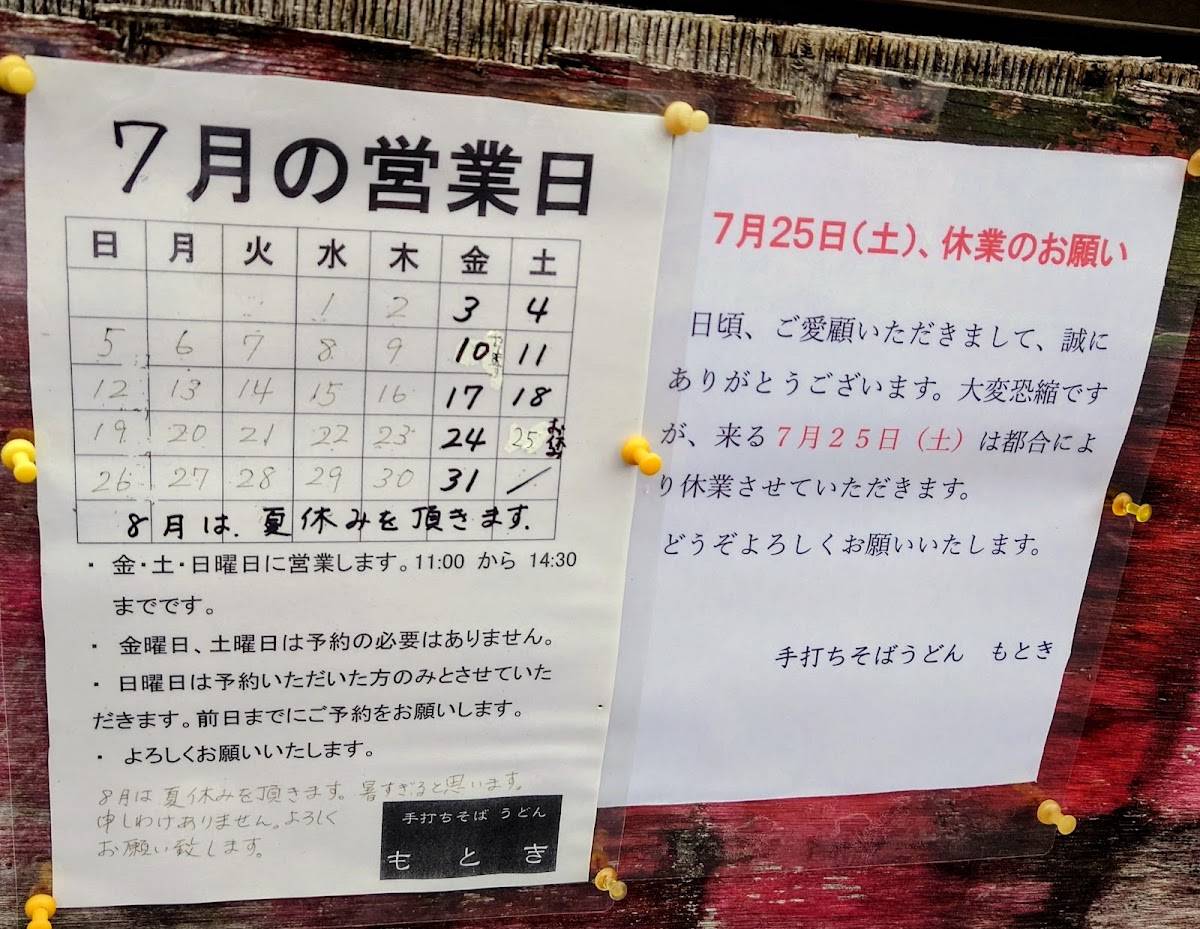 7月の営業日
日 月 火 水 木 金 土
1 2 3 4
5 6 7 8 9 10 11
12 13 14 15 16 17 18
19 20 21 22 23 24 25 お休み
26 27 28 29 30 31 /
8月は、夏休みを頂きます.
・ 金・土・日曜日に営業します。11:00 から 14:30
までです。
・ 金曜日、土曜日は予約の必要はありません。
・ 日曜日は予約いただいた方のみとさせていた
だきます。前日までにご予約をお願いします。
・ よろしくお願いいたします。
8月は夏休みを頂きます。暑すぎると思います。
申しわけありません。よろしく
お願い致します。
手打ちそば うどん
もとき
7月25日(土)、休業のお願い
日頃、ご愛顧いただきまして、誠に
ありがとうございます。大変恐縮です
が、来る7月25日(土)は都合によ
り休業させていただきます。
どうぞよろしくお願いいたします。
手打ちそばうどん もとき